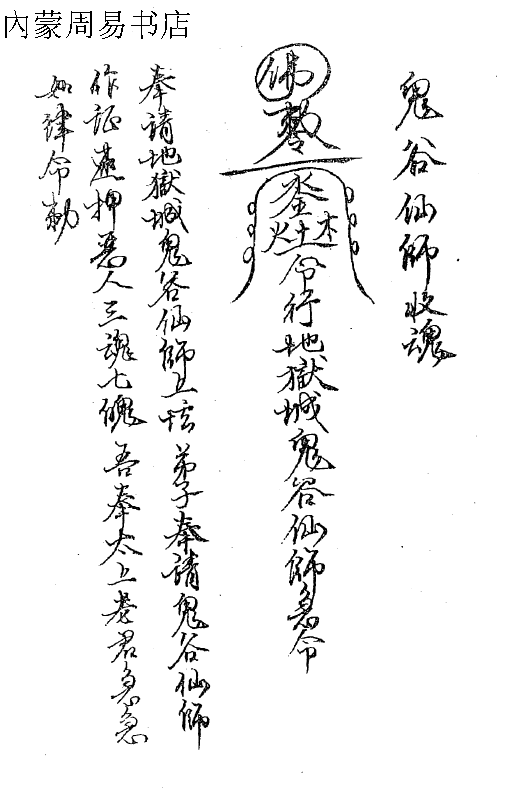 內蒙周易书店
鬼谷仙師收魂
佛敕
水金木火土令行地獄城鬼谷仙師急令
奉請地獄城鬼谷仙師上壇弟子奉請鬼谷仙師
作证押惡人三魂七魄吾奉太上老君急急
如律令敕